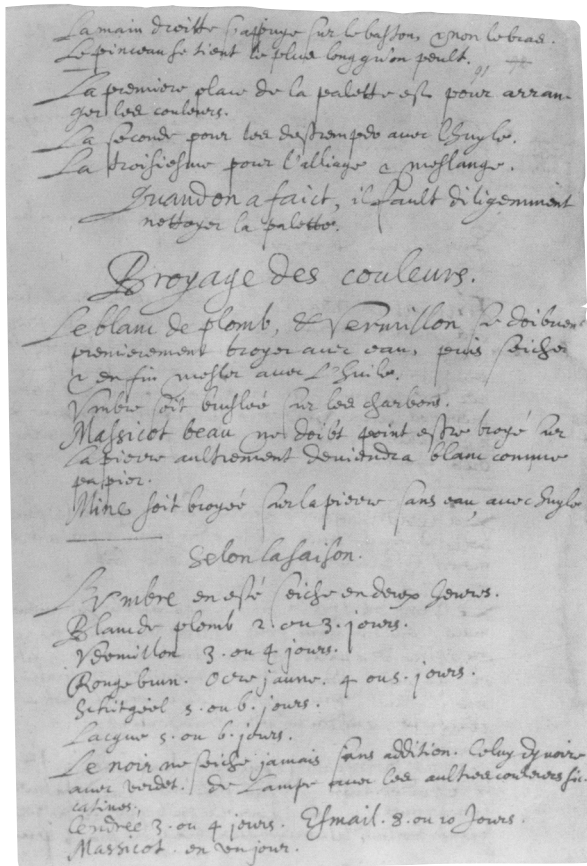 La main droitte s'appuye sur le baston, & non le bras.
Le pinceau se tient le plus long qu'on peult.
La premiere place de la palette est pour arran-
ger les couleurs.
La seconde pour les destrempes avec l'huyle.
La troisiesme pour l'alliage & meslange.
Quand on a faict, il fault diligemment
nettoyer la palette.
Broyage des couleurs.
Le blanc de plomb, & Vermillon se doibuent
premierement broyer avec eau, puis seicher
& en fin mesler avec l'huile.
Vmbre soit bruslée sur les charbons.
Massicot beau ne doibt point estre broyé sur
la pierre aultrement deviendra blanc comme
papier.
Mine soit broyée sur la pierre sans eau, avec huyle
Selon la saison.
L'Vmbre en esté seiche en deux heures.
Blanc de plomb 2. ou 3. jours.
Vermillon 3. ou 4 jours.
Rouge brun. Ocre jaune. 4 ou 5. jours.
Schitgeel 5. ou 6. jours.
Lacque 5. ou 6. jours.
Le noir ne seiche jamais sans addition. Celuy d'yvoire
avec verdet. de Lampe avec les aultres couleurs sic-
catives.
Cendrée 3. ou 4 jours. Esmail. 8. ou 10 Jours.
Massicot. en un jour.